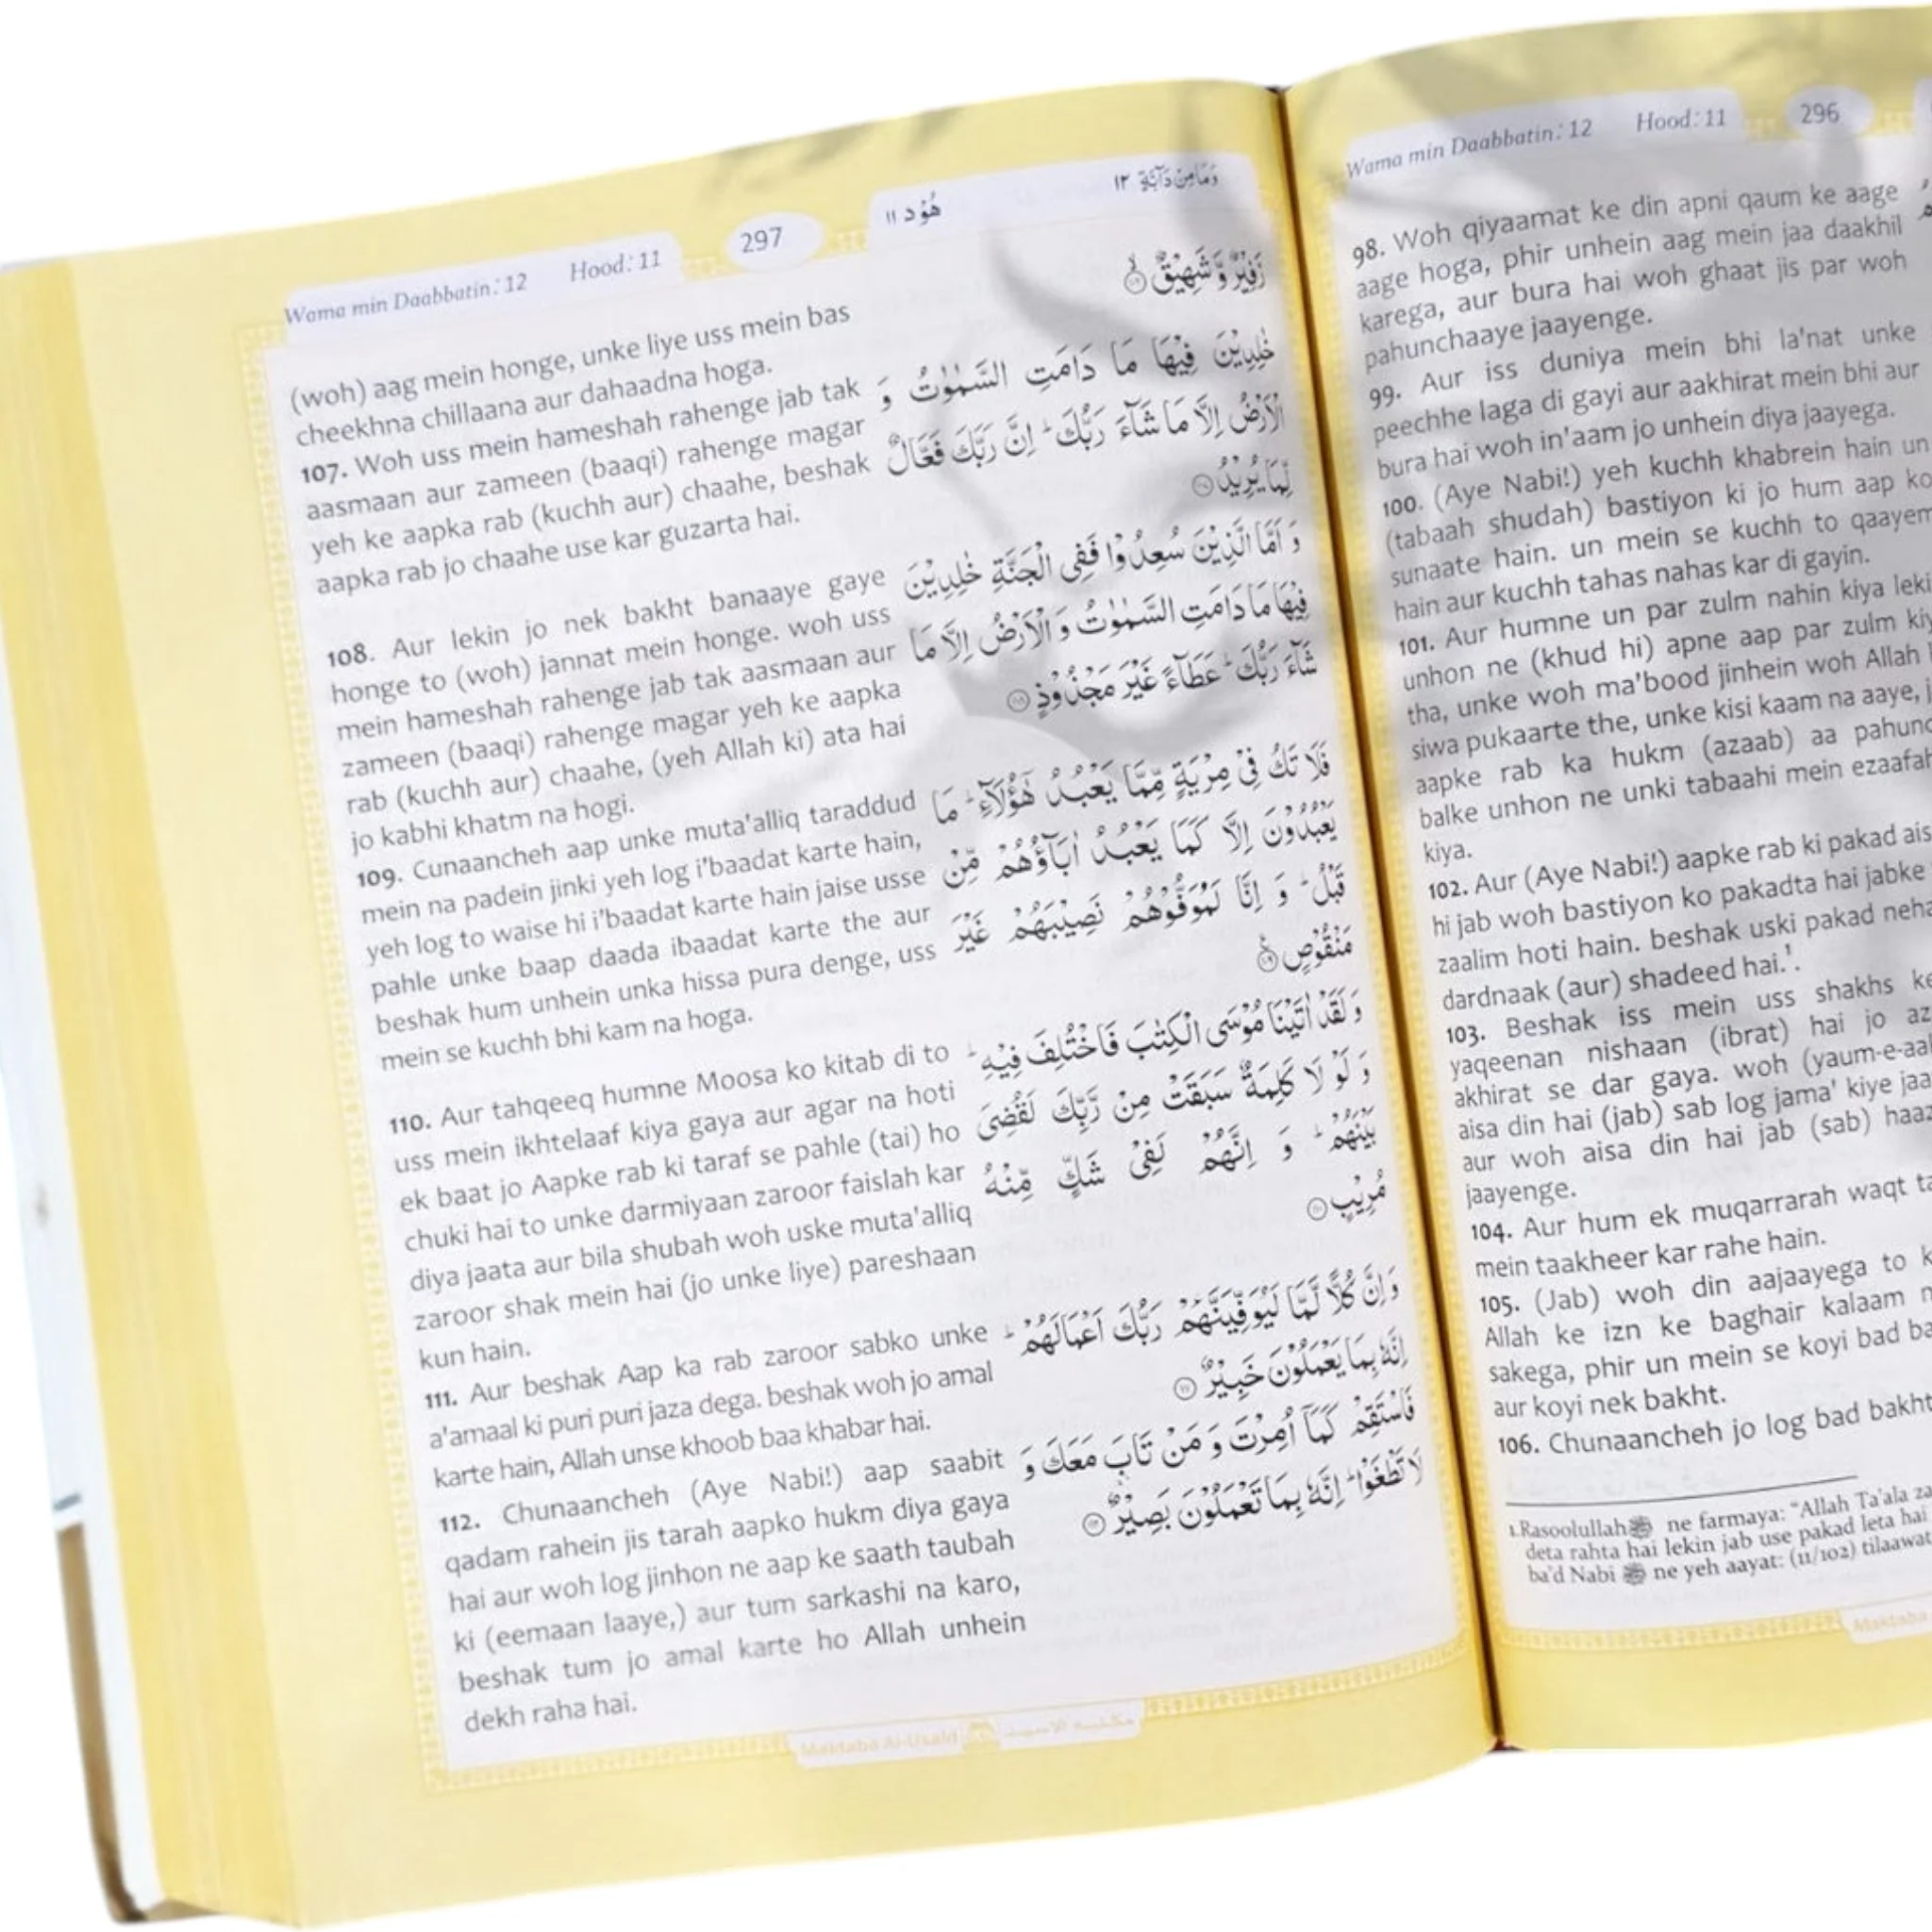 Wama min Daabbatin: 12 Hood: 11 297 هُوْد ١١ وَمَا مِنْ دَآبَّةٍ ١٢
(woh) aag mein honge, unke liye uss mein bas
cheekhna chillaana aur dahaadna hoga.
107. Woh uss mein hameshah rahenge jab tak
aasmaan aur zameen (baaqi) rahenge magar
yeh ke aapka rab (kuchh aur) chaahe, beshak
aapka rab jo chaahe use kar guzarta hai.
108. Aur lekin jo nek bakht banaaye gaye
honge to (woh) jannat mein honge. woh uss
mein hameshah rahenge jab tak aasmaan aur
zameen (baaqi) rahenge magar yeh ke aapka
rab (kuchh aur) chaahe, (yeh Allah ki) ata hai
jo kabhi khatm na hogi.
109. Cunaancheh aap unke muta'alliq taraddud
mein na padein jinki yeh log i'baadat karte hain,
yeh log to waise hi i'baadat karte hain jaise usse
pahle unke baap daada ibaadat karte the aur
beshak hum unhein unka hissa pura denge, uss
mein se kuchh bhi kam na hoga.
110. Aur tahqeeq humne Moosa ko kitab di to
uss mein ikhtelaaf kiya gaya aur agar na hoti
ek baat jo Aapke rab ki taraf se pahle (tai) ho
chuki hai to unke darmiyaan zaroor faislah kar
diya jaata aur bila shubah woh uske muta'alliq
zaroor shak mein hai (jo unke liye) pareshaan
kun hain.
111. Aur beshak Aap ka rab zaroor sabko unke
a'amaal ki puri puri jaza dega. beshak woh jo amal
karte hain, Allah unse khoob baa khabar hai.
112. Chunaancheh (Aye Nabi!) aap saabit
qadam rahein jis tarah aapko hukm diya gaya
hai aur woh log jinhon ne aap ke saath taubah
ki (eemaan laaye,) aur tum sarkashi na karo,
beshak tum jo amal karte ho Allah unhein
dekh raha hai.
زَفِيْرٌ وَّ شَهِيْقٌ ۙ
خٰلِدِيْنَ فِيْهَا مَا دَامَتِ السَّمٰوٰتُ وَ
الْاَرْضُ اِلَّا مَا شَآءَ رَبُّكَ ؕ اِنَّ رَبَّكَ فَعَّالٌ
لِّمَا يُرِيْدُ
وَ اَمَّا الَّذِيْنَ سُعِدُوْا فَفِي الْجَنَّةِ خٰلِدِيْنَ
فِيْهَا مَا دَامَتِ السَّمٰوٰتُ وَ الْاَرْضُ اِلَّا مَا
شَآءَ رَبُّكَ ؕ عَطَآءً غَيْرَ مَجْذُوْذٍ
فَلَا تَكُ فِيْ مِرْيَةٍ مِّمَّا يَعْبُدُ هٰٓؤُلَآءِ ؕ مَا
يَعْبُدُوْنَ اِلَّا كَمَا يَعْبُدُ اٰبَآؤُهُمْ مِّنْ
قَبْلُ ؕ وَ اِنَّا لَمُوَفُّوْهُمْ نَصِيْبَهُمْ غَيْرَ
مَنْقُوْصٍ
وَ لَقَدْ اٰتَيْنَا مُوْسَى الْكِتٰبَ فَاخْتُلِفَ فِيْهِ ؕ
وَ لَوْ لَا كَلِمَةٌ سَبَقَتْ مِنْ رَّبِّكَ لَقُضِيَ
بَيْنَهُمْ ؕ وَ اِنَّهُمْ لَفِيْ شَكٍّ مِّنْهُ
مُرِيْبٍ
وَ اِنَّ كُلًّا لَّمَّا لَيُوَفِّيَنَّهُمْ رَبُّكَ اَعْمَالَهُمْ ؕ
اِنَّهٗ بِمَا يَعْمَلُوْنَ خَبِيْرٌ
فَاسْتَقِمْ كَمَاۤ اُمِرْتَ وَ مَنْ تَابَ مَعَكَ وَ
لَا تَطْغَوْا ؕ اِنَّهٗ بِمَا تَعْمَلُوْنَ بَصِيْرٌ
Maktaba Al-Usaid مكتبة الاسيد
Wama min Daabbatin: 12 Hood: 11 296
98. Woh qiyaamat ke din apni qaum ke aage
aage hoga, phir unhein aag mein jaa daakhil
karega, aur bura hai woh ghaat jis par woh
pahunchaaye jaayenge.
99. Aur iss duniya mein bhi la'nat unke
peechhe laga di gayi aur aakhirat mein bhi aur
bura hai woh in'aam jo unhein diya jaayega.
100. (Aye Nabi!) yeh kuchh khabrein hain un
(tabaah shudah) bastiyon ki jo hum aap ko
sunaate hain. un mein se kuchh to qaayem
hain aur kuchh tahas nahas kar di gayin.
101. Aur humne un par zulm nahin kiya leki
unhon ne (khud hi) apne aap par zulm kiy
tha, unke woh ma'bood jinhein woh Allah
siwa pukaarte the, unke kisi kaam na aaye,
aapke rab ka hukm (azaab) aa pahunc
balke unhon ne unki tabaahi mein ezaafa
kiya.
102. Aur (Aye Nabi!) aapke rab ki pakad ais
hi jab woh bastiyon ko pakadta hai jabke
zaalim hoti hain. beshak uski pakad neha
dardnaak (aur) shadeed hai.¹.
103. Beshak iss mein uss shakhs ke
yaqeenan nishaan (ibrat) hai jo az
akhirat se dar gaya. woh (yaum-e-aa
aisa din hai (jab) sab log jama' kiye jaa
aur woh aisa din hai jab (sab) haaz
jaayenge.
104. Aur hum ek muqarrarah waqt ta
mein taakheer kar rahe hain.
105. (Jab) woh din aajaayega to k
Allah ke izn ke baghair kalaam n
sakega, phir un mein se koyi bad ba
aur koyi nek bakht.
106. Chunaancheh jo log bad bakht
1.Rasoolullah ﷺ ne farmaya: “Allah Ta'ala za
deta rahta hai lekin jab use pakad leta hai
ba'd Nabi ﷺ ne yeh aayat: (11/102) tilaawat
Maktaba